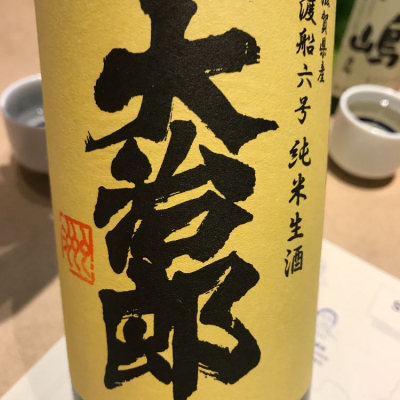 滋賀県産
渡船六号 純米生酒
大治郎
嶋